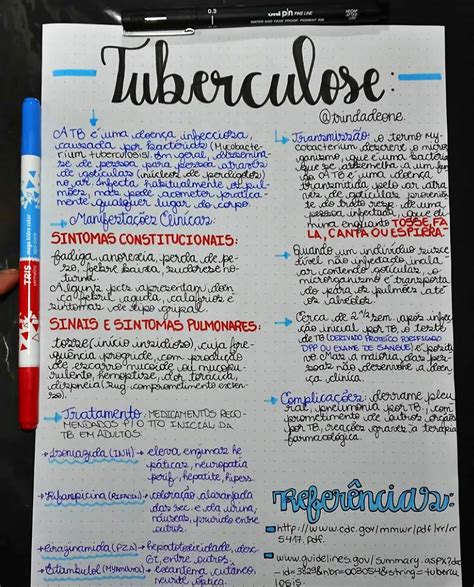 0.3
uni pin FINE LINE
WATER AND FADE PROOF, PIGMENT INK
Tuberculose:
@trindadeone
A TB é uma doença infecciosa,
causada por bactérias (Mycobacte-
rium tuberculosis). Em geral, dissemina-
se de pessoa para pessoa através
de gotículas (núcleos de perdigotos)
no ar. Infecta habitualmente os pul-
mões, mas pode acometer pratica-
mente qualquer lugar do corpo.
Manifestações Clínicas:
SINTOMAS CONSTITUCIONAIS:
fadiga, anorexia, perda de pe-
so, febre baixa, sudorese no-
turna
Alguns pcts apresentam doen
febril aguda, calafrios e
sintomas de tipo gripal
SINAIS E SINTOMAS PULMONARES:
tosse (início insidioso), cuja fre-
quência progride, com produção
de escarro mucoide ou mucopu-
rulento, hemoptise, dor torácica,
dispneia (sug. comprometimento exten-
so).
Tratamento: MEDICAMENTOS RECO-
MENDADOS P/ O TTO INICIAL DA
TB EM ADULTOS:
Isoniazida (INH) → eleva enzimas he
páticas, neuropatia
perif., hepatite, hipers.
Rifampicina → coloração alaranjada
das sec. e da urina,
náuseas, prurido entre
outros.
Pirazinamida (PZA) → hepatotoxicidade, desc.
GI, entre outros.
Etambutol → exantema cutâneo,
neurite óptica.
Transmissão: o termo My-
cobacterium descreve o micror-
ganismo, que é uma bactéria
que se assemelha a um fun-
go. A TB é uma doença
transmitida pelo ar atra-
vés de gotículas provenien-
tes do trato resp. de uma
pessoa infectada, que eli-
mina enquanto TOSSE, FA-
LA, CANTA OU ESPIRRA.
Quando um indivíduo suscet
tível não infectado inala
ar contendo gotículas, o
microrganismo é transporta-
do para os pulmões até
os alvéolos.
Cerca de sem após infec-
ção inicial por TB, o teste
de TB (DERIVADO PROTEICO PURIFICADO
DPP OU EXAME DE SANGUE) é positi-
vo. Mas a maioria das pes-
soas não desenvolve a doen
ça clínica.
Complicações: derrame pleu
ral, pneumonia por TB, com
prometimento de outros órgãos
por TB, reações graves à terapia
farmacológica.
Referências:
http://www.cdc.gov/mmwr/pdf/rr/rr
5417.pdf.
www.guidelines.gov/summary.aspx?doc
TRIS